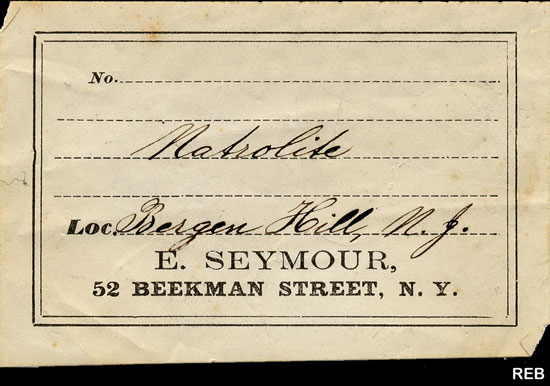 No.
Natrolite
Loc. Bergen Hill, N. J.
E. SEYMOUR,
52 BEEKMAN STREET, N. Y.
REB